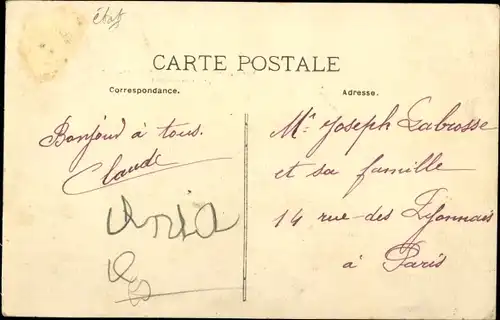 état
CARTE POSTALE
Correspondance.
Adresse.
Bonjour à tous.
Claude
Mr Joseph Labrosse
et sa famille
14 rue des Lyonnais
à Paris